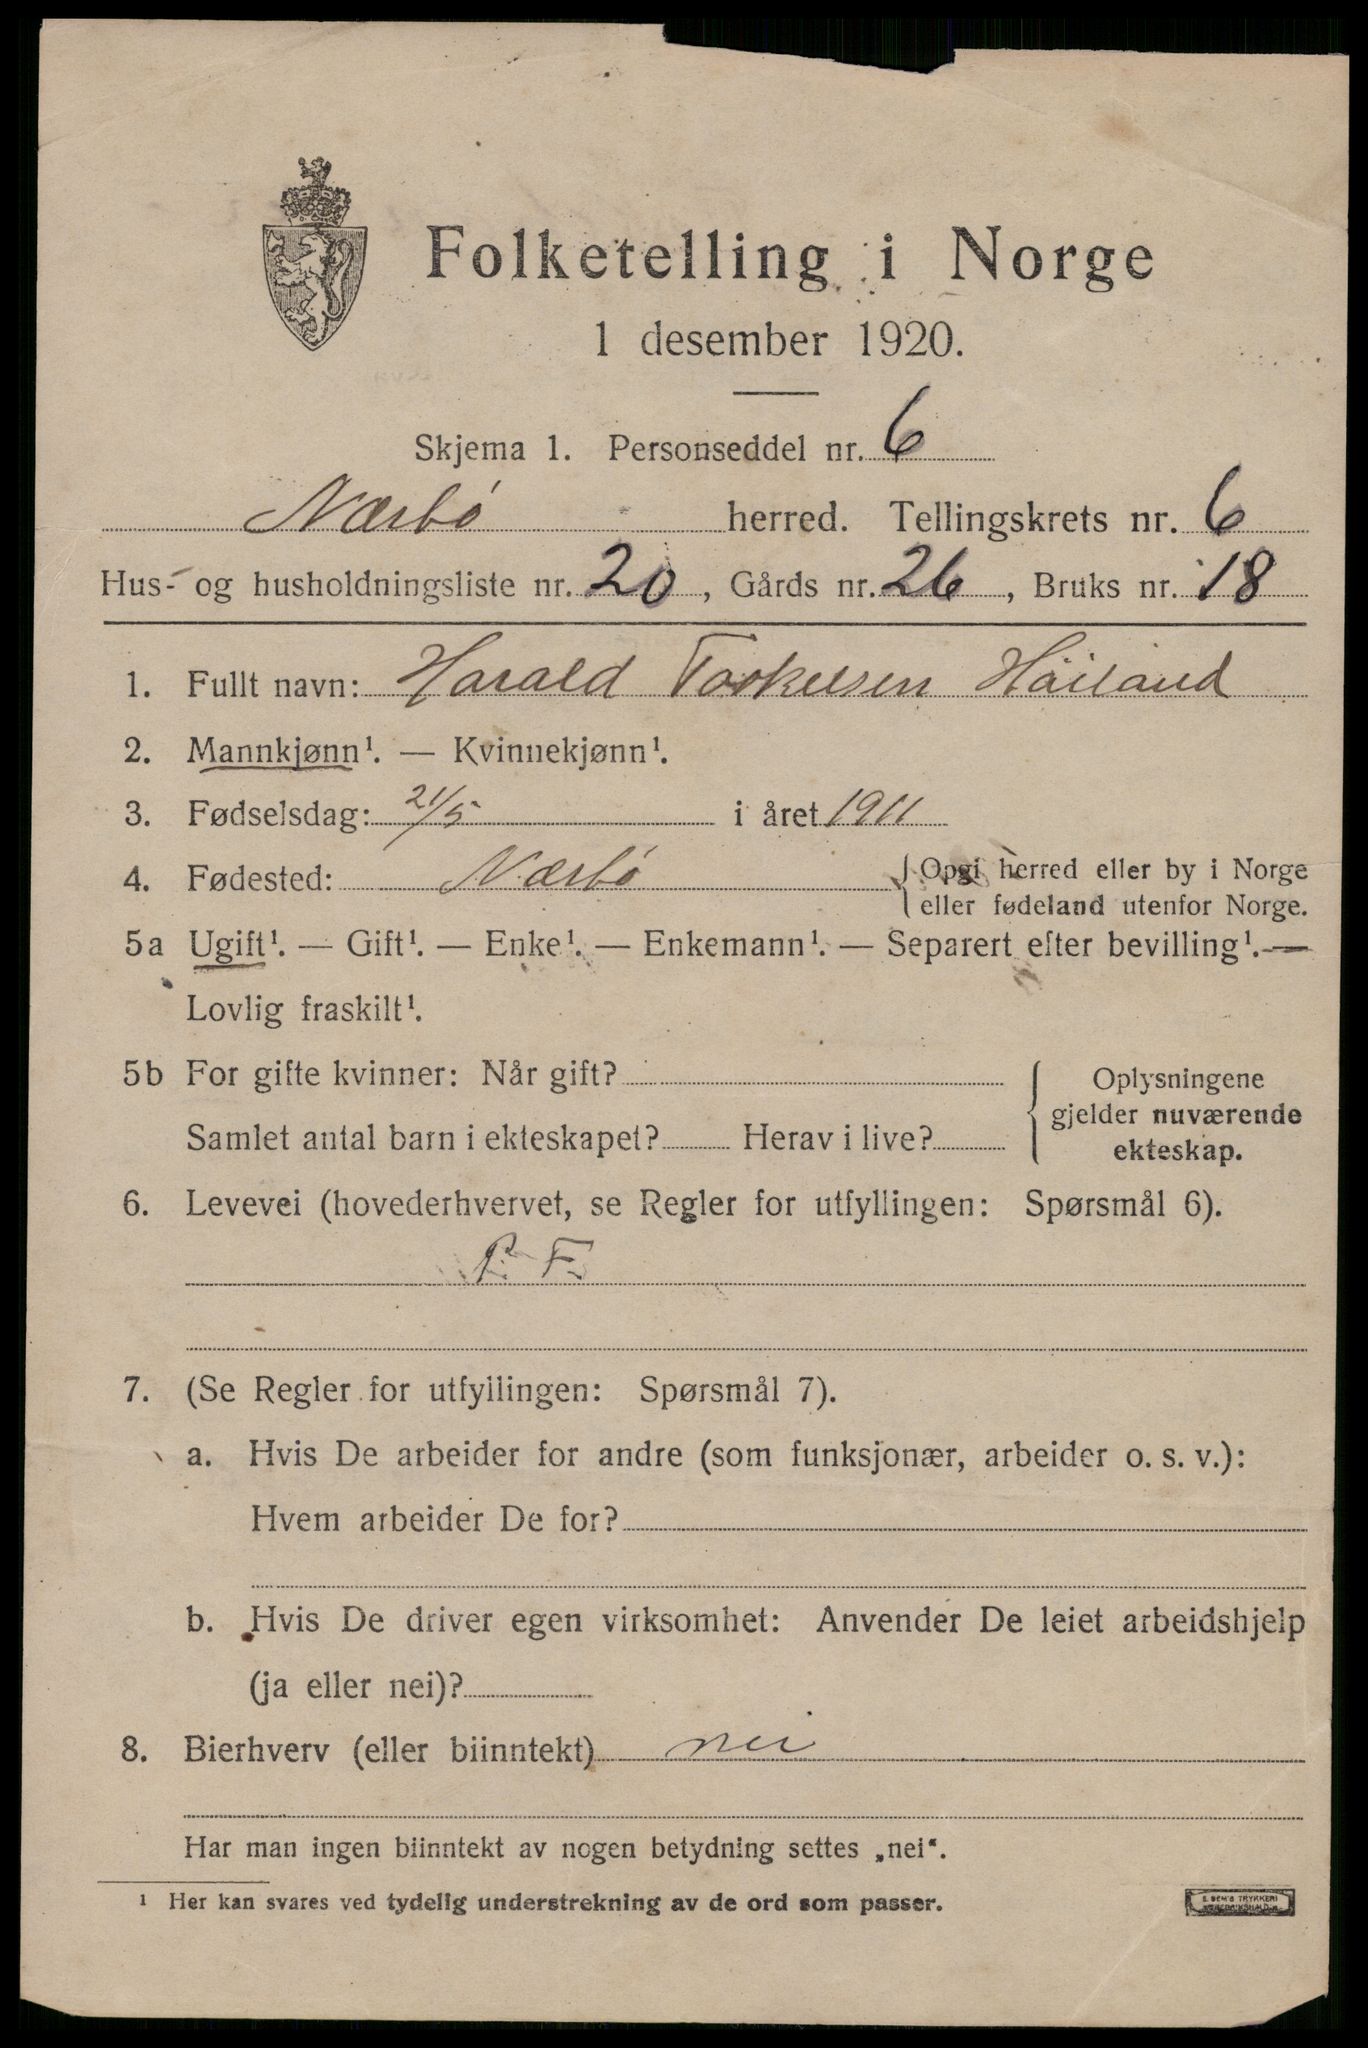 Folketelling i Norge
1 desember 1920.
Skjema 1. Personseddel nr. 6
Nærbö herred. Tellingskrets nr. 6
Hus- og husholdningsliste nr. 20, Gårds nr. 26, Bruks nr. 18
1. Fullt navn: Harald Torkelsen Höiland
2. Mannkjønn¹. — Kvinnekjønn¹.
3. Fødselsdag: 21/5 i året 1911
4. Fødested: Nærbö { Opgi herred eller by i Norge
eller fødeland utenfor Norge.
5a Ugift¹. — Gift¹. — Enke¹. — Enkemann¹. — Separert efter bevilling¹. —
Lovlig fraskilt¹.
5b For gifte kvinner: Når gift?
Samlet antal barn i ekteskapet? Herav i live?
{ Oplysningene
gjelder nuværende
ekteskap.
6. Levevei (hovederhvervet, se Regler for utfyllingen: Spørsmål 6).
P. F.
7. (Se Regler for utfyllingen: Spørsmål 7).
a. Hvis De arbeider for andre (som funksjonær, arbeider o. s. v.):
Hvem arbeider De for?
b. Hvis De driver egen virksomhet: Anvender De leiet arbeidshjelp
(ja eller nei)?
8. Bierhverv (eller biinntekt) nei
Har man ingen biinntekt av nogen betydning settes „nei“.
¹ Her kan svares ved tydelig understrekning av de ord som passer.